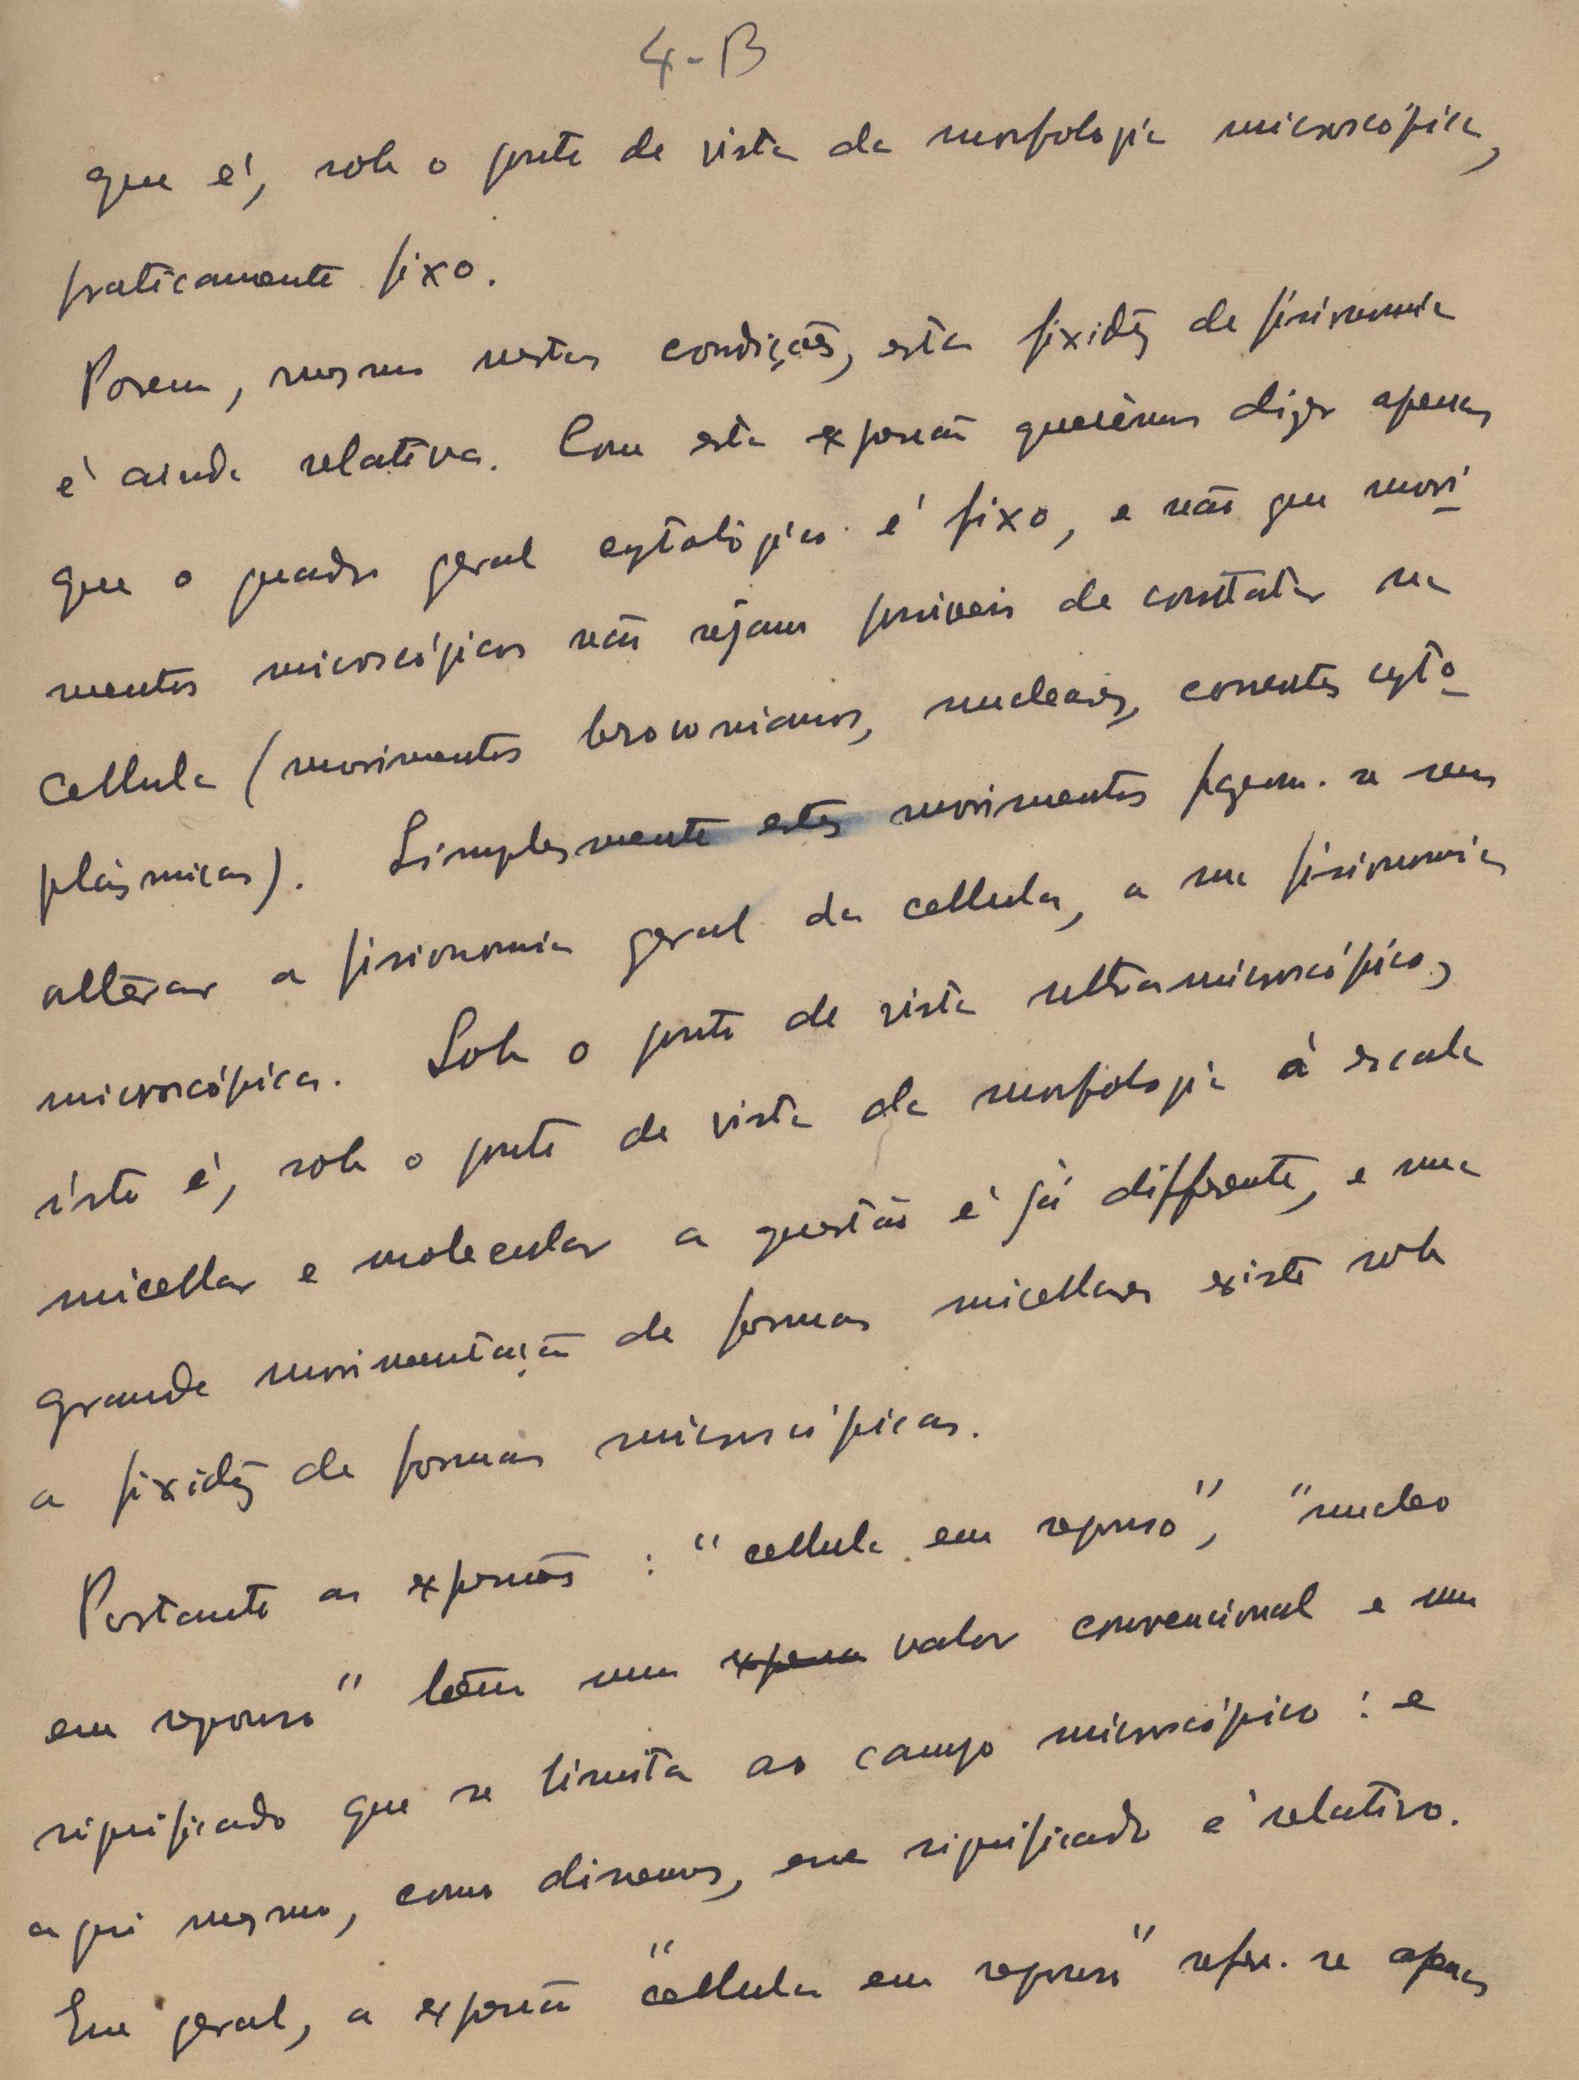 4-B
que é, sob o ponto de vista da morfologia microscópica,
praticamente fixo.
Porem, mesmo nestas condições, esta fixidês de fisionomia
é ainda relativa. Com esta expressão querêmos dizer apenas
que o quadro geral cytológico é fixo, e não que movi-
mentos microscópicos não sejam possiveis de constatar na
cellula (movimentos brownianos, nucleares, correntes cyto-
plásmicas). Simplesmente estes movimentos fazem-se sem
alterar a fisionomia geral da cellula, a sua fisionomia
microscópica. Sob o ponto de vista ultramicroscópico,
isto é, sob o ponto de vista da morfologia á escala
micellar e molecular a questão é já differente, e uma
grande movimentação de formas micellares existe sob
a fixidês de formas microscópicas.
Portanto as expressões: "cellula em repouso", "nucleo
em repouso" têm um valor convencional e um
significado que se limita ao campo microscópico: e
aqui mesmo, como dissemos, esse significado é relativo.
Em geral, a expressão "cellula em repouso" refere-se apenas